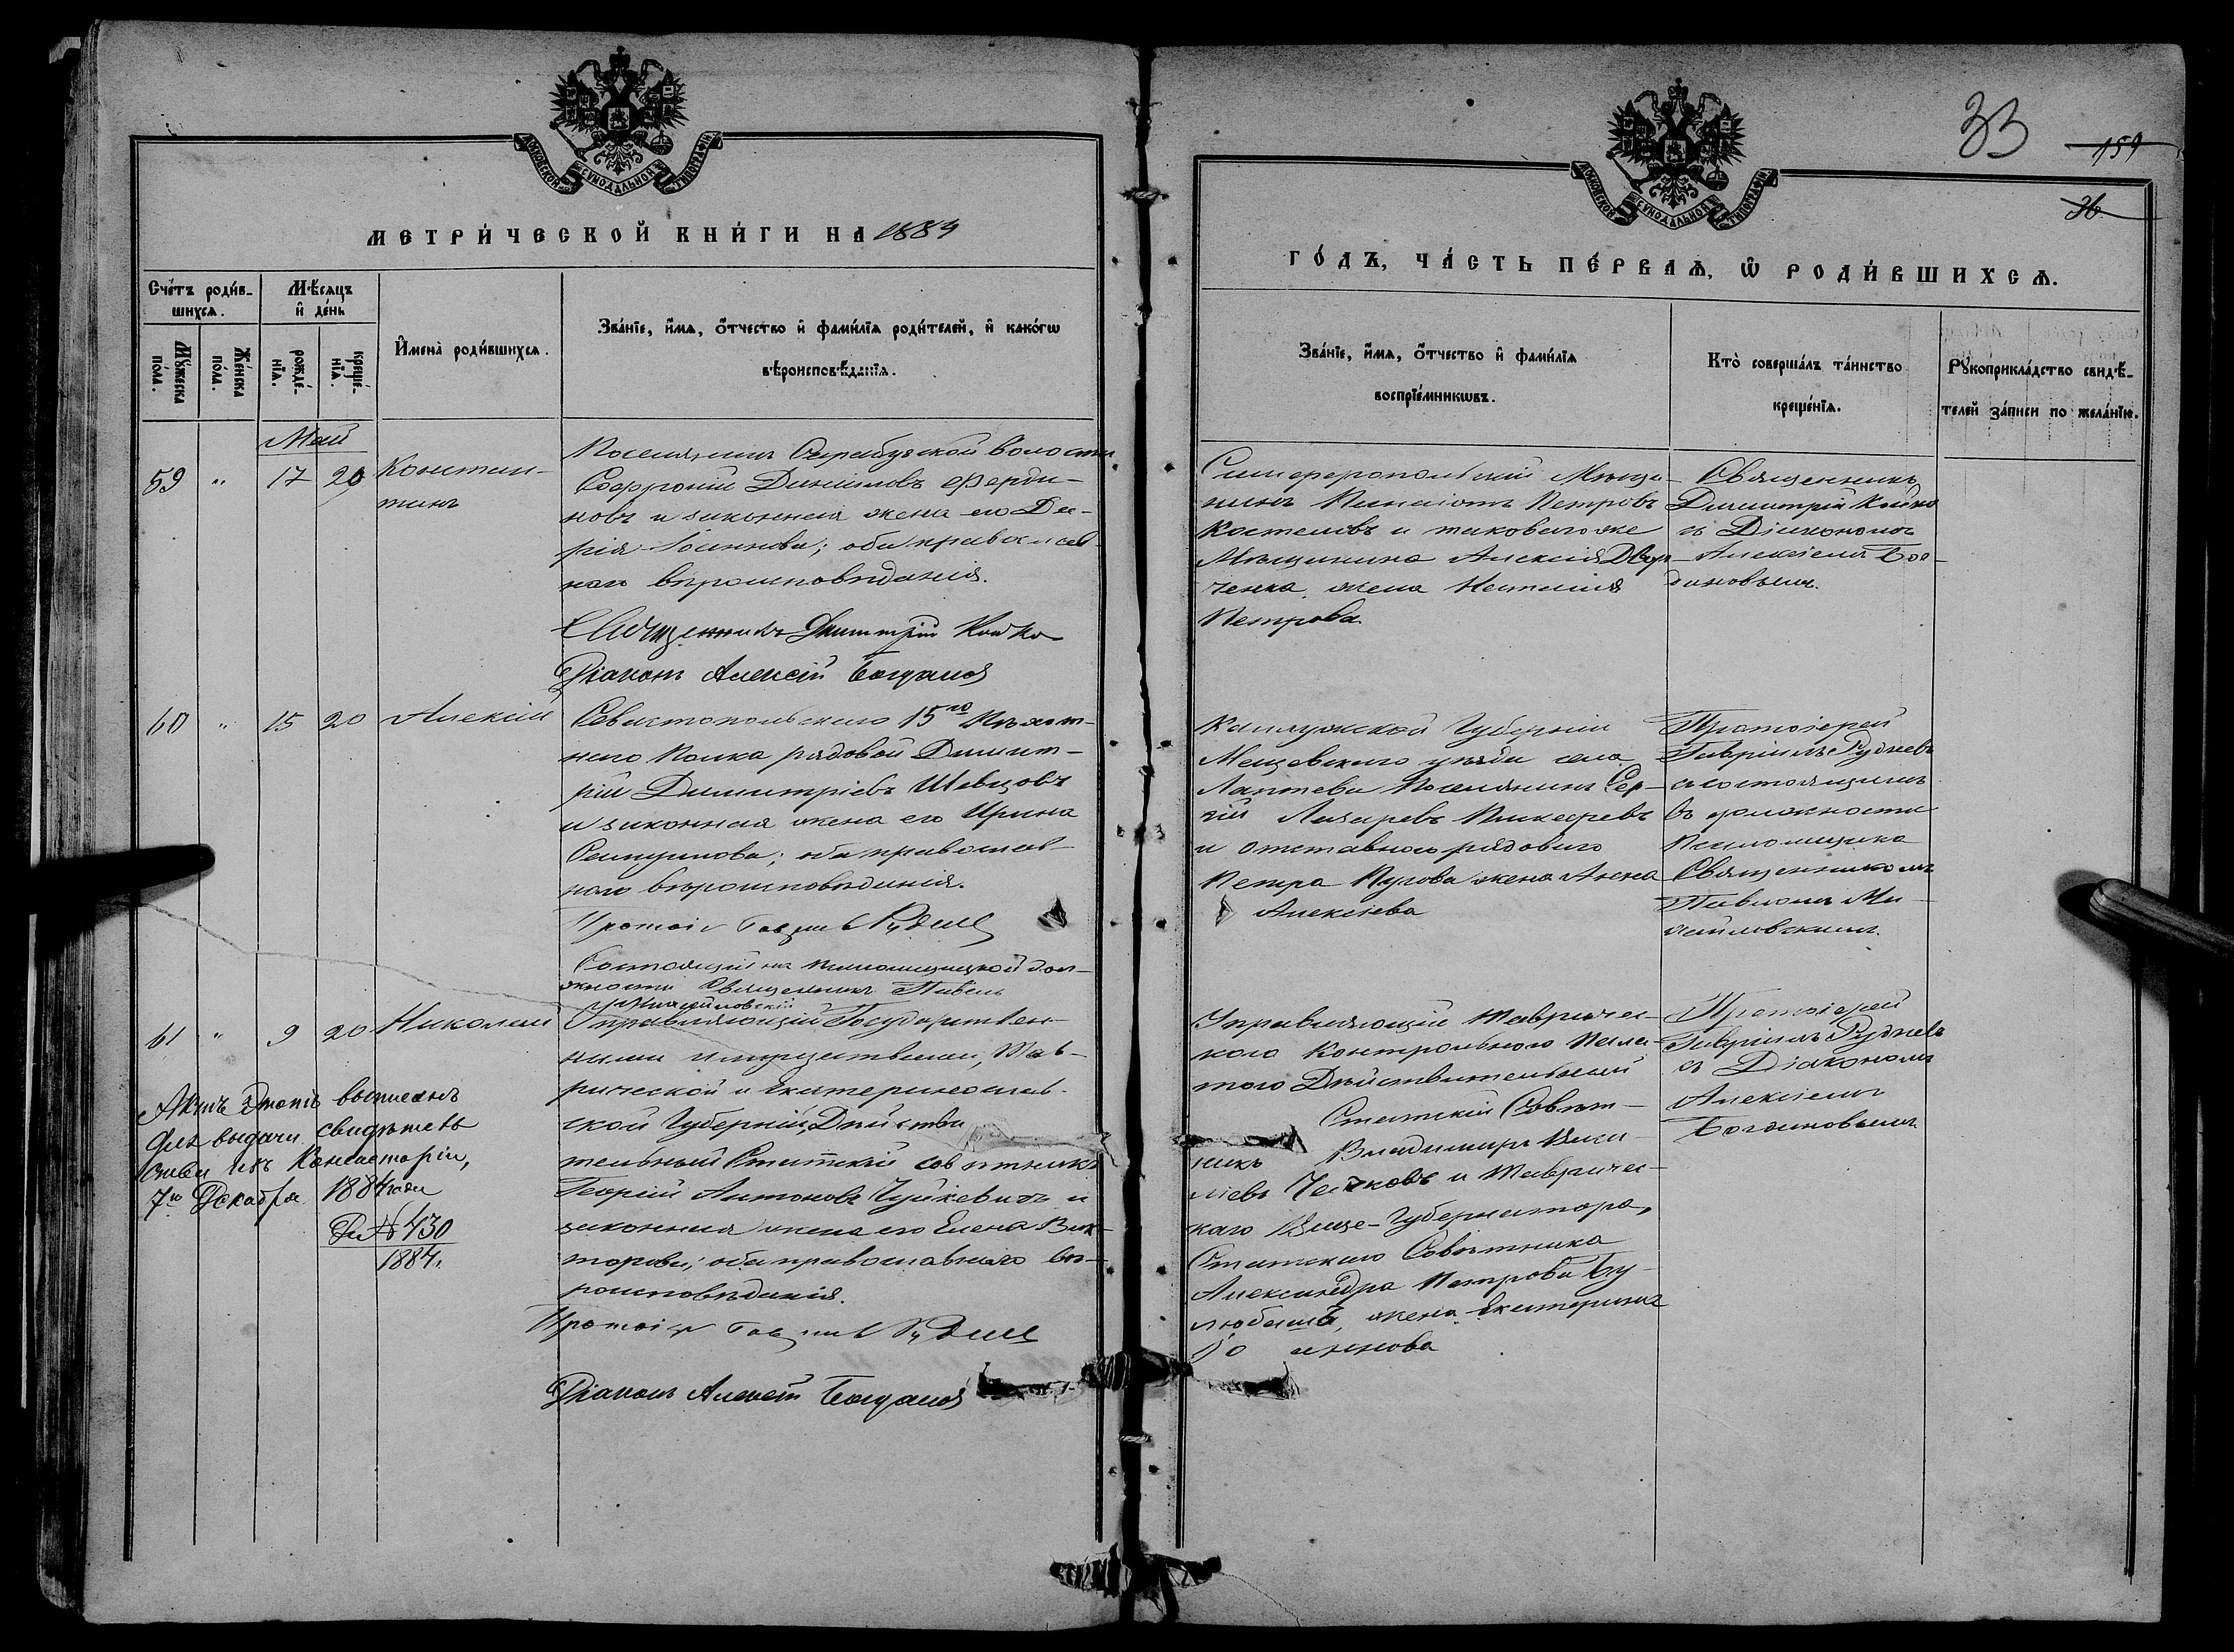 МОСКОВСКОЙ СѴНОДАЛЬНОЙ ТИПОГРАФІИ
МЕТРИ́ЧЕСКОЙ КНИ́ГИ НА 1884
Сче́тъ роди́в-
шихсѧ.
Мѣ́сѧцъ
и҆ де́нь
Мꙋ́жеска
по́ла.
Же́нска
по́ла.
рожде́-
нїѧ.
креще́-
нїѧ.
И҆мена̀ роди́вшихсѧ.
Зва́нїе, и҆́мѧ, ѻ҆́тчество и҆ фами́лїѧ роди́телей, и҆ како́гѡ
вѣроисповѣ́данїѧ.
Май
59 " 17 20 Констан-
тинъ
Поселянинъ волости
Софроній Даніиловъ Ферди-
новъ и законная жена его Да-
рія Іоаннова; оба православ-
наго вѣроисповѣданія.
Священникъ Димитрій Койко
Діаконъ Алексій Богдановъ
60 " 15 20 Алексій
Севастопольскаго 15го Пѣхот-
наго Полка рядовой Димит-
рій Димитріевъ Шевцовъ
и законная жена его Ирина
оба православ-
наго вѣроисповѣданія.
Протоіер Гавріилъ Рудневъ
Состоящій на псаломщицкой дол-
жности Священникъ Павелъ
Михайловскій
61 " 9 20 Николай
Управляющій Государствен-
ными имуществами, Тав-
рической и Екатеринослав-
ской Губерній, Дѣйстви
тельный Статскій совѣтникъ
Георгій Антоновъ Чуйкевичъ и
законная жена его Елена Вик-
торова; оба православнаго вѣ-
роисповѣданія.
Протоіер Гавріилъ Рудневъ
Діаконъ Алексій Богдановъ
Актъ этотъ выписанъ
для выдачи свидѣтель
ства изъ Консисторіи,
7го Декабря 1884 года
№ 430
1884.
33
159
36
МОСКОВСКОЙ СѴНОДАЛЬНОЙ ТИПОГРАФІИ
ГО́ДЪ, ЧА́СТЬ ПЕ́РВАѦ, Ѡ҆ РОДИ́ВШИХСѦ.
Зва́нїе, и҆́мѧ, ѻ҆́тчество и҆ фами́лїѧ
воспрїе́мникѡвъ.
Кто̀ соверша́лъ та́инство
креще́нїѧ.
Рꙋкоприкла́дство свидѣ́-
телей за́писи по жела́нїю.
Симферопольскій Мѣща-
нинъ Панаіотъ Петровъ
Костеловъ и таковаго же
Мѣщанина Алексія
ченка жена Наталія
Петрова.
Священникъ
Димитрій Койко
съ Діакономъ
Алексіемъ Бог-
дановымъ.
Калужской Губерніи
Мещовскаго уѣзда села
Лаптева Поселянинъ Сер-
гій Лазаревъ
и отставного рядового
Петра Пугова жена Анна
Алексіева
Протоіерей
Гавріилъ Рудневъ
съ состоящимъ
въ должности
Псаломщика
Священникомъ
Павломъ Ми-
хайловскимъ.
Управляющій Тавричес-
кого Контрольного Пала-
тою Дѣйствительный
Статскій Совѣт-
никъ Владимиръ Васи-
ліевъ и Тавричес-
каго Вице-Губернатора,
Статскаго Совѣтника
Александра Петрова Бу-
любашъ, жена Екатерина
Іоаннова
Протоіерей
Гавріилъ Рудневъ
съ Діакономъ
Алексіемъ
Богдановымъ